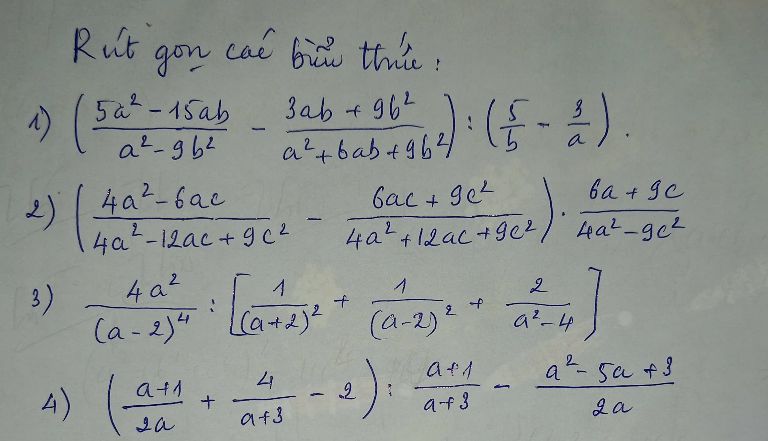 Rút gọn các biểu thức:
1) ( (5a² - 15ab)/(a² - 9b²) - (3ab + 9b²)/(a² + 6ab + 9b²) ) : ( 5/b - 3/a ).
2) ( (4a² - 6ac)/(4a² - 12ac + 9c²) - (6ac + 9c²)/(4a² + 12ac + 9c²) ) . (6a + 9c)/(4a² - 9c²)
3) 4a²/(a-2)⁴ : [ 1/(a+2)² + 1/(a-2)² + 2/(a² - 4) ]
4) ( (a+1)/2a + 4/(a+3) - 2 ) : (a+1)/(a+3) - (a² - 5a + 3)/2a